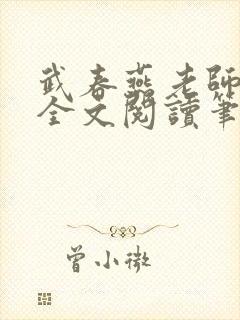 武春燕老師
全文閱讀筆
曾小微